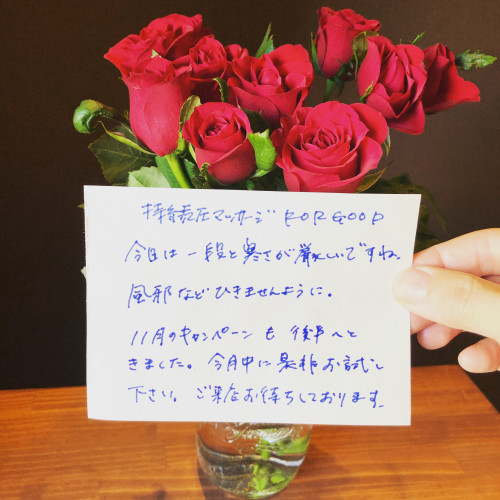 指圧マッサージ FOR GOOD
今日は一段と寒さが厳しいですね。
風邪などひきませんように。
11月のキャンペーンも後半へと
きました。今月中に是非お試し
下さい。ご来店お待ちしております。